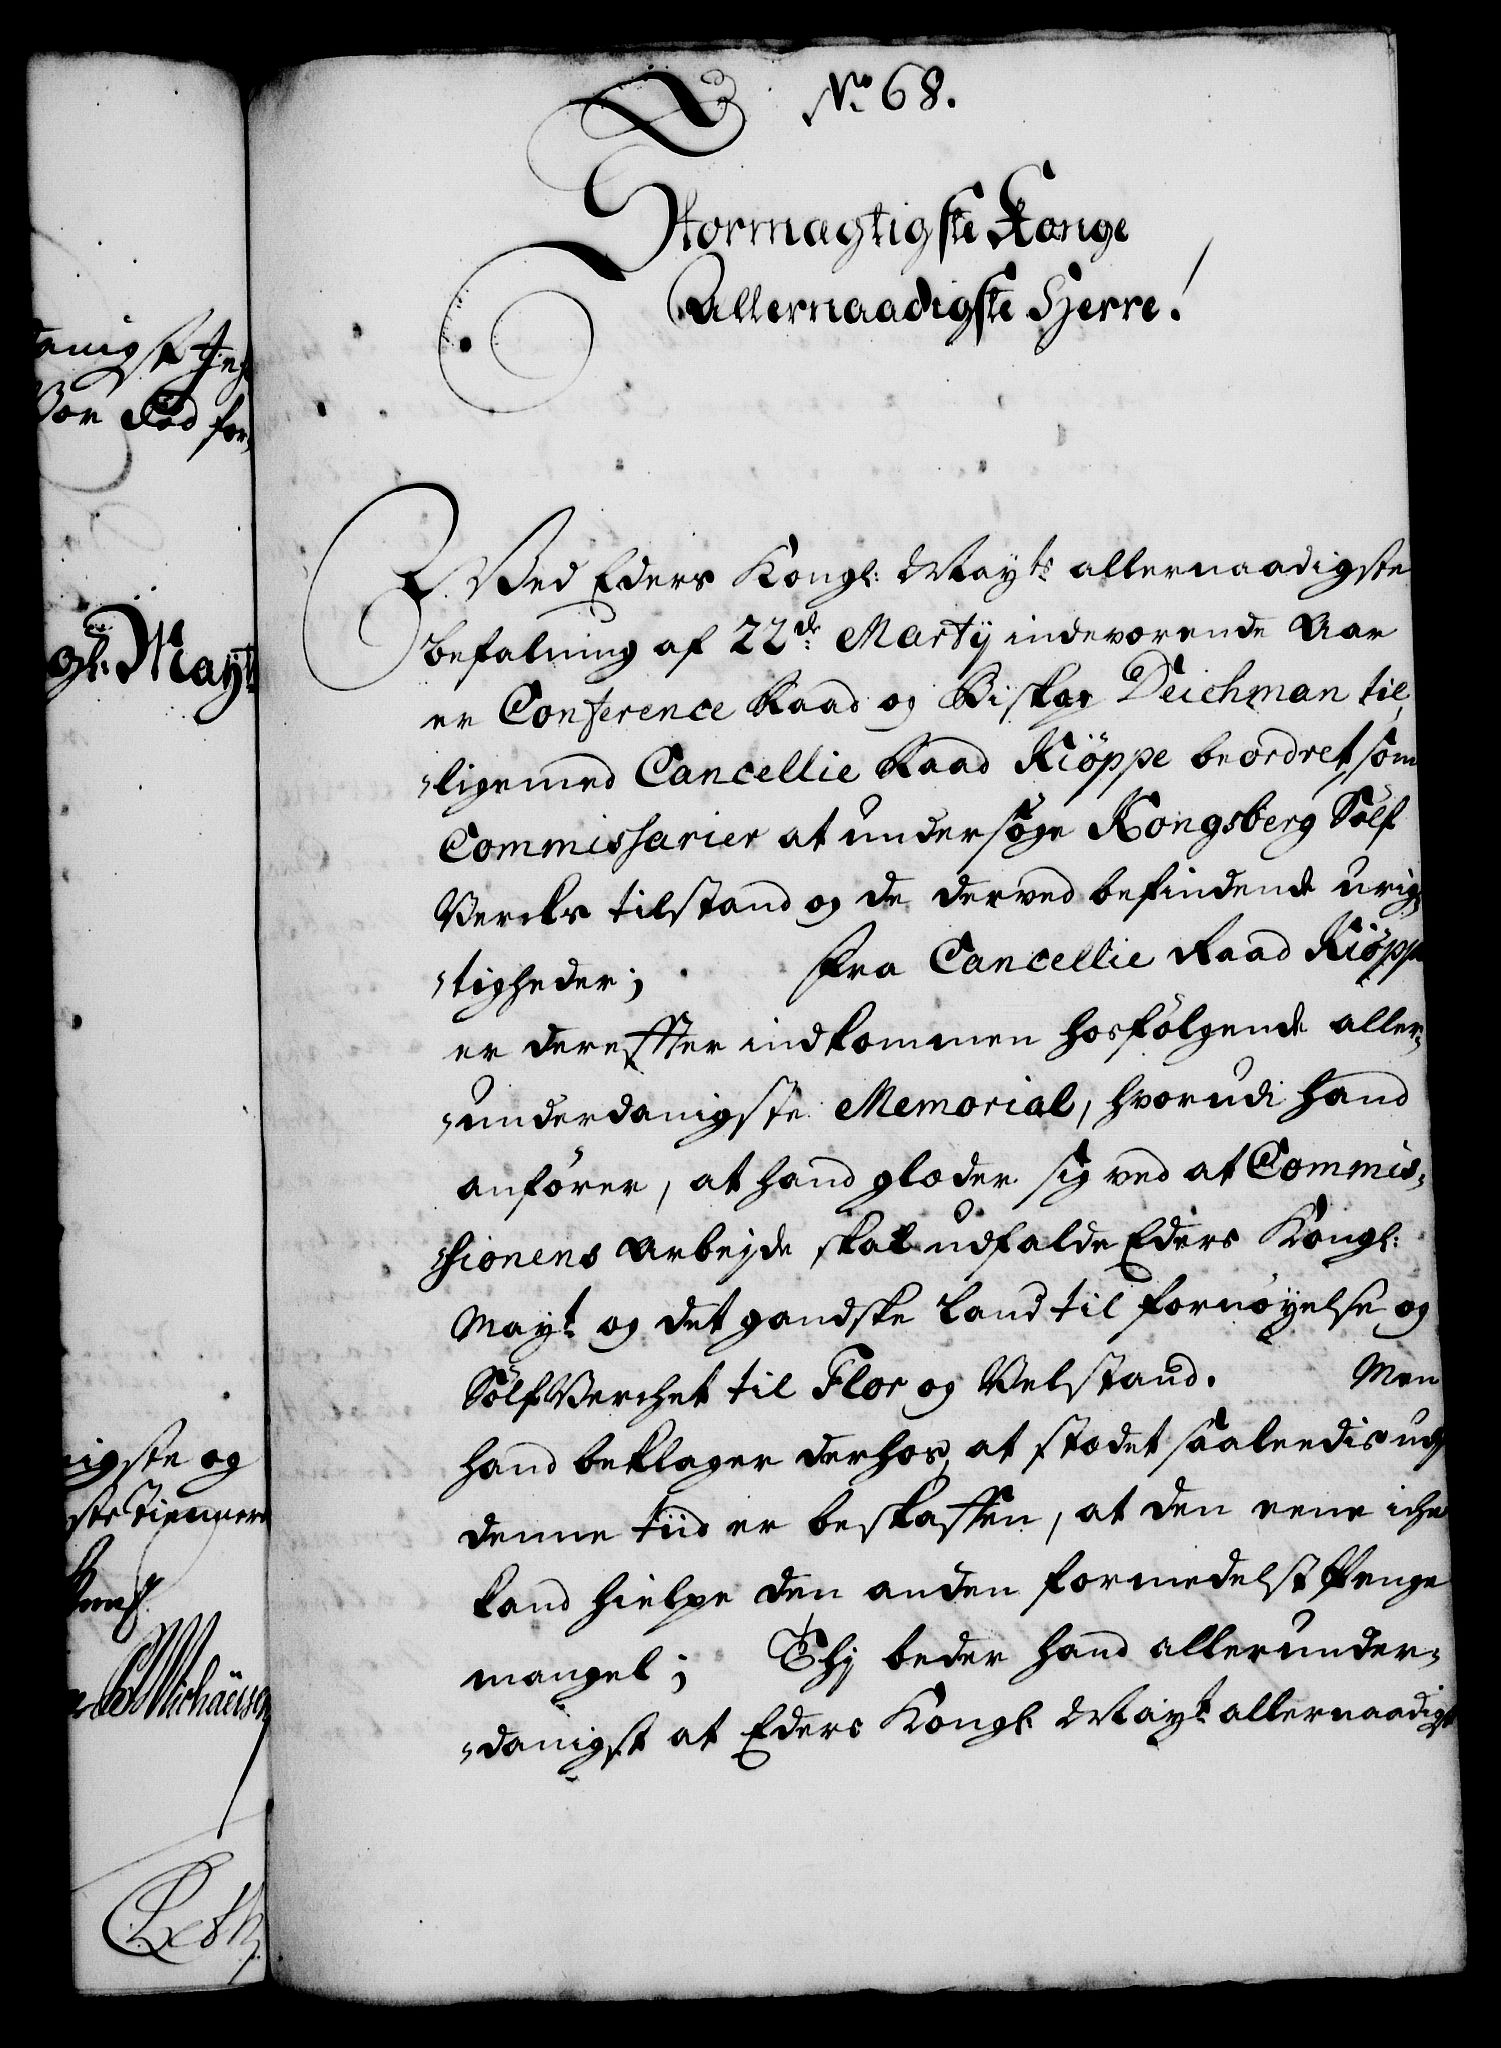 No 68.
Stormægtigste Konge
Allernaadigste Herre!
Ved Eders Kongl: Mayts allernaadigste
befalning af 22de Martij indeværende Aar
er Conference Raad og Biskop Deichman til
ligemed Cancellie Raad Kiöppe beordret, som
Commissarier at undersöge Kongsberg Sölf
Vercks tilstand og de derved befindende urig
tigheder; Fra Cancellie Raad Kiöppe
er derefter indkommen hosfölgende aller-
underdanigste Memorial, hvorudi hand
anförer, at hand glæder sig ved at Commis-
sionens Arbejde skal udfalde Eders Kongl:
Mayt og det gandske Land til fornöyelse og
SölfVerchet til Flor og Velstand. Men
hand beklager derhos, at stædet saaledis ud
denne tiid er beskaffen, at den eene iche
kand hielpe den anden formedelst Penge
mangel; Thj beder hand allerunder-
danigst at Eders Kongl: Mayt allernaadigst
danigst
Vor Eed for
gl: Mayts
nigste og
ste Tiennere